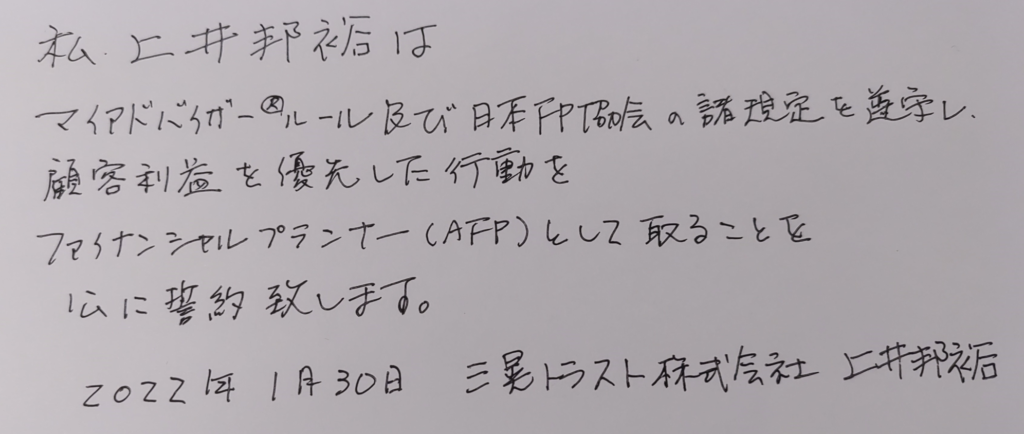 私 上井邦裕は
マイアドバイザー®ルール及び日本FP協会の諸規定を遵守し、
顧客利益を優先した行動を
ファイナンシャルプランナー(AFP)として取ることを
公に誓約致します。
2022年1月30日 三晃トラスト株式会社 上井邦裕